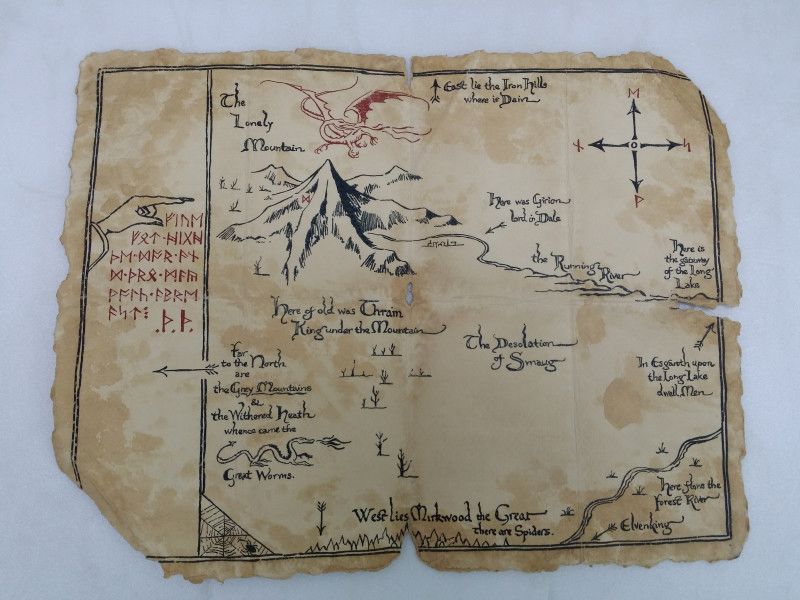 The
Lonely
Mountain
East lie the Iron Hills
where is Dain
ᛖ
ᚾ
ᛋ
ᚹ
ᛞ
Here was Girion
lord in Dale
the Running River
Here is
the gateway
of the Long
Lake
ᚠᛁᚢᛖ
ᚠᚩᛏ·ᚻᛁᚷᚻ
ᚦᛖ·ᛞᚩᚱ·ᚪᚾ
ᛞ·ᚦᚱᛟ·ᛗᚪᚣ
ᚹᚪᛚᚳ·ᚪᛒᚱᛖ
ᚪᛋᛏ⁝
·ᚦ·ᚦ·
Here of old was Thrain
King under the Mountain
The Desolation
of Smaug
far
to the North
are
the Grey Mountains
&
the Withered Heath
whence came the
Great Worms.
In Esgaroth upon
the Long Lake
dwell Men
Here flows the
Forest River
Elvenking
West lies Mirkwood the Great
there are Spiders.